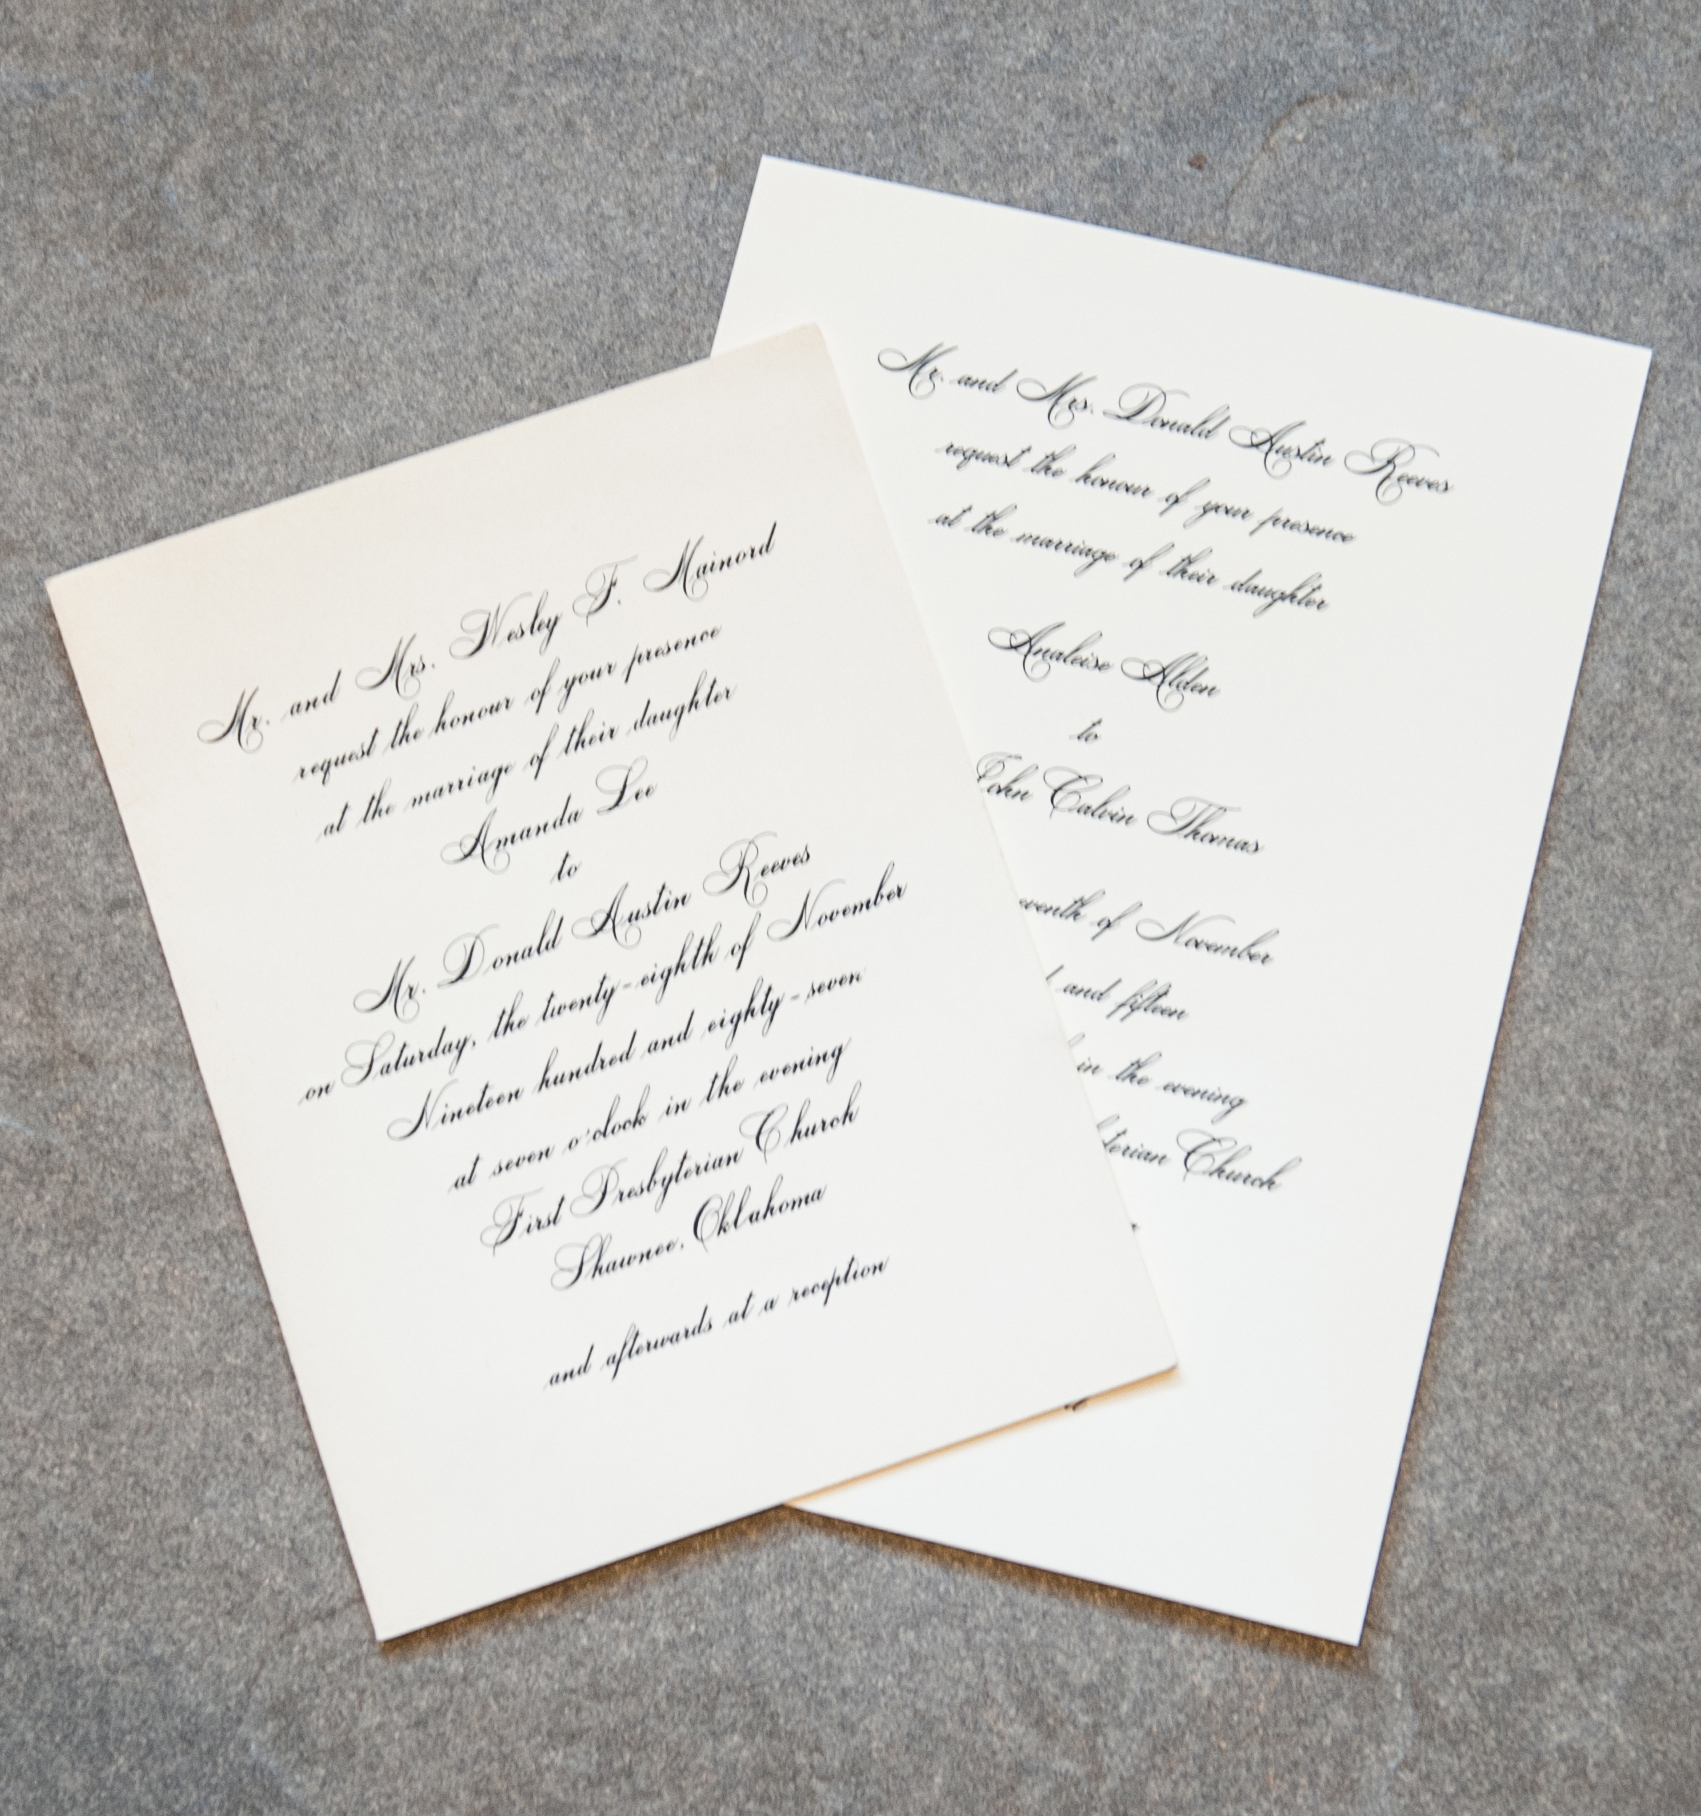 Mr. and Mrs. Wesley F. Mainord
request the honour of your presence
at the marriage of their daughter
Amanda Lee
to
Mr. Donald Austin Reeves
on Saturday, the twenty-eighth of November
Nineteen hundred and eighty-seven
at seven o'clock in the evening
First Presbyterian Church
Shawnee, Oklahoma
and afterwards at a reception
Mr. and Mrs. Donald Austin Reeves
request the honour of your presence
at the marriage of their daughter
Analeise Alden
to
John Calvin Thomas
of November
and fifteen
in the evening
Church